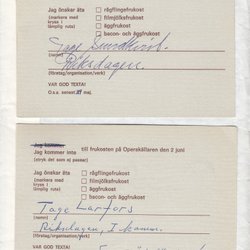 Jag önskar äta ☐ rågflingefrukost
(markera med ☐ filmjölksfrukost
kryss i
lämplig ruta) ☐ äggfrukost
☐ bacon- och äggfrukost
Tage Sundkvist
Riksdagen
(företag/organisation/verk)
VAR GOD TEXTA!
O.s.a. senast maj.
Jag kommer
Jag kommer inte till frukosten på Operakällaren den 2 juni
(stryk det som ej passar)
Jag önskar äta ☐ rågflingefrukost
(markera med ☐ filmjölksfrukost
kryss i
lämplig ruta) ☐ äggfrukost
☐ bacon- och äggfrukost
Tage Larfors
Riksdagen, I kamm.
(företag/organisation/verk)
VAR GOD TEXTA!